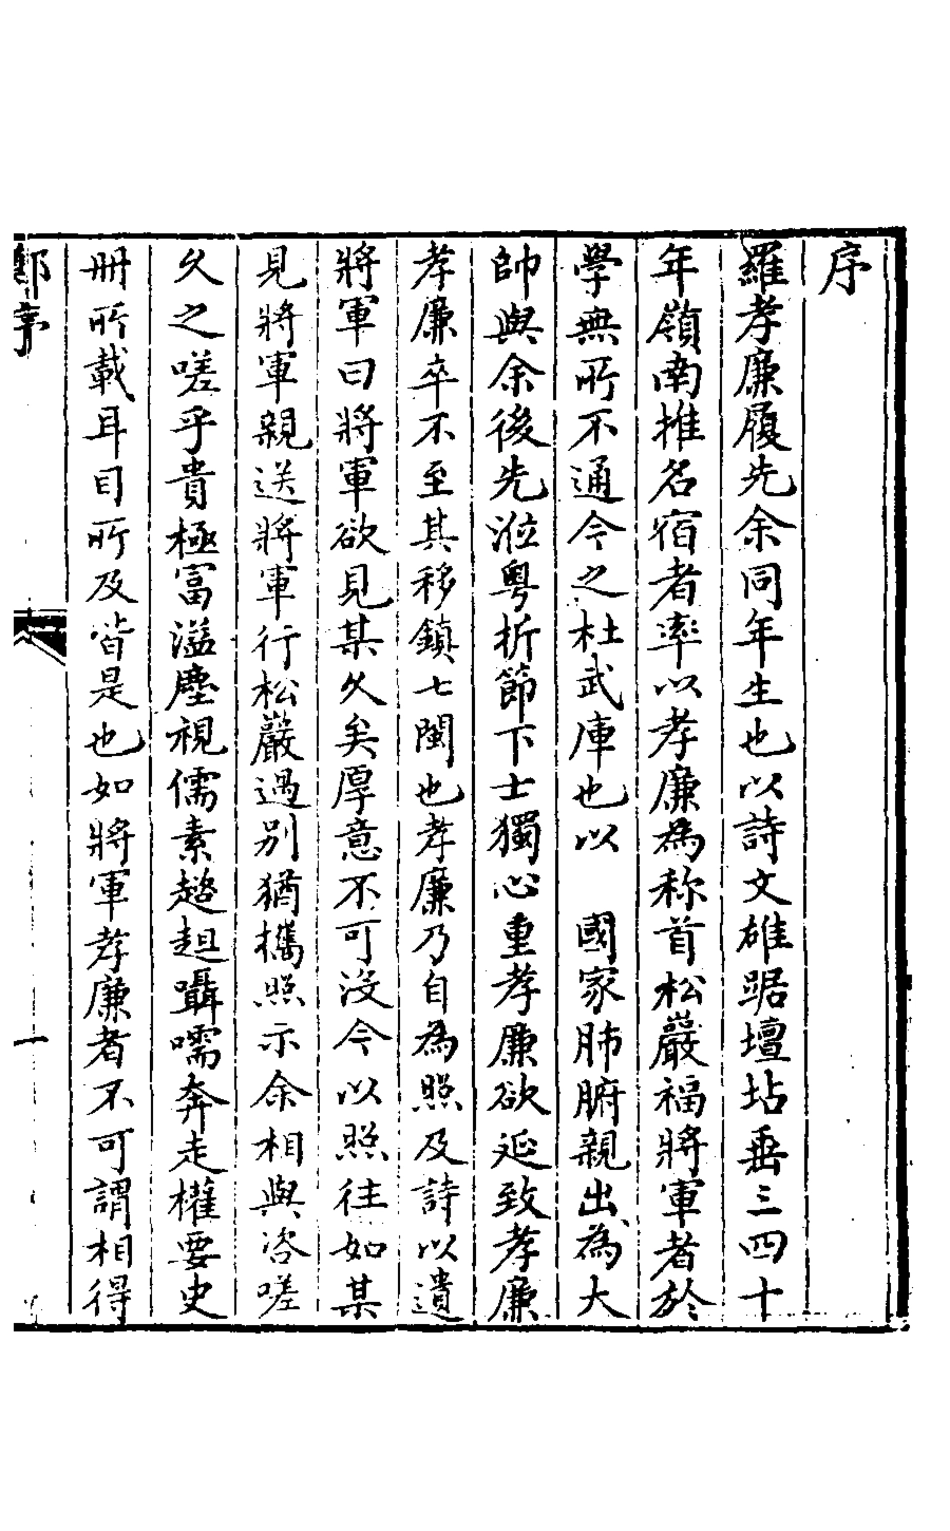 序
羅孝廉履先余同年生也以詩文雄踞壇坫垂三四十
年嶺南推名宿者率以孝廉為称首松巖福將軍者於
學無所不通今之杜武庫也以　國家肺腑親出為大
帥與余後先涖粵折節下士獨心重孝廉欲延致孝廉
孝廉卒不至其移鎮七閩也孝廉乃自為照及詩以遺
將軍曰將軍欲見某久矣厚意不可沒今以照往如某
見將軍親送將軍行松巖過別猶攜照示余相與咨嗟
久之嗟乎貴極富溢塵視儒素趦趄囁嚅奔走權要史
冊所載耳目所及皆是也如將軍孝廉者不可謂相得
鄭序
一